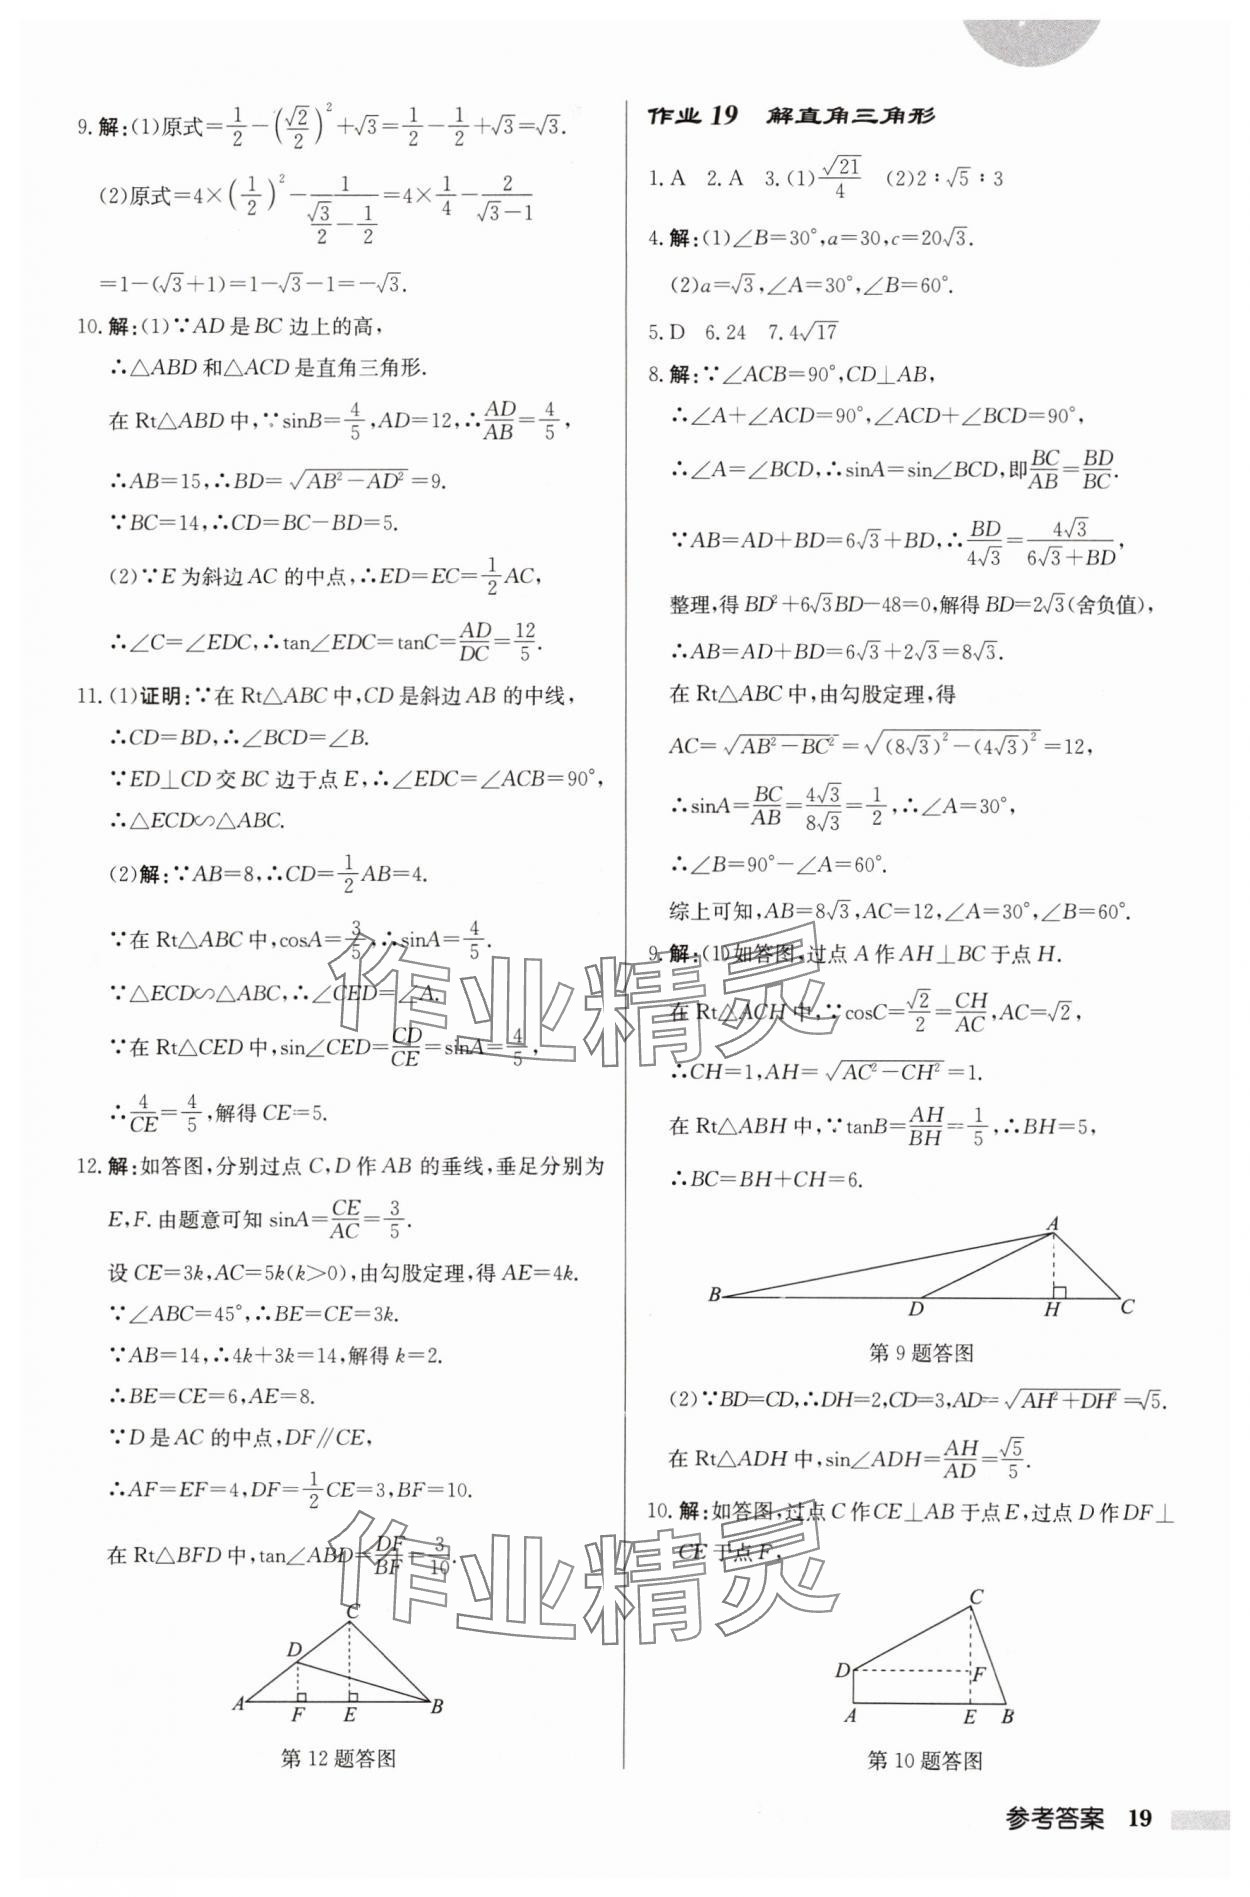 9.解:(1)原式=1/2-(√2/2)²+√3=1/2-1/2+√3=√3.
(2)原式=4×(1/2)²-1/(√3/2-1/2)=4×1/4-2/(√3-1)
=1-(√3+1)=1-√3-1=-√3.
10.解:(1)∵AD是BC边上的高,
∴△ABD和△ACD是直角三角形.
在Rt△ABD中,∵sinB=4/5,AD=12,∴AD/AB=4/5,
∴AB=15,∴BD=√(AB²-AD²)=9.
∵BC=14,∴CD=BC-BD=5.
(2)∵E为斜边AC的中点,∴ED=EC=1/2AC,
∴∠C=∠EDC,∴tan∠EDC=tanC=AD/DC=12/5.
11.(1)证明:∵在Rt△ABC中,CD是斜边AB的中线,
∴CD=BD,∴∠BCD=∠B.
∵ED⊥CD交BC边于点E,∴∠EDC=∠ACB=90°,
∴△ECD∽△ABC.
(2)解:∵AB=8,∴CD=1/2AB=4.
∵在Rt△ABC中,cosA=3/5,∴sinA=4/5.
∵△ECD∽△ABC,∴∠CED=∠A.
∵在Rt△CED中,sin∠CED=CD/CE=sinA=4/5,
∴4/CE=4/5,解得CE=5.
12.解:如答图,分别过点C,D作AB的垂线,垂足分别为
E,F.由题意可知sinA=CE/AC=3/5.
设CE=3k,AC=5k(k>0),由勾股定理,得AE=4k.
∵∠ABC=45°,∴BE=CE=3k.
∵AB=14,∴4k+3k=14,解得k=2.
∴BE=CE=6,AE=8.
∵D是AC的中点,DF∥CE,
∴AF=EF=4,DF=1/2CE=3,BF=10.
在Rt△BFD中,tan∠ABD=DF/BF=3/10.
C
D
A F E B
第12题答图
作业19 解直角三角形
1.A 2.A 3.(1)√21/4 (2)2∶√5∶3
4.解:(1)∠B=30°,a=30,c=20√3.
(2)a=√3,∠A=30°,∠B=60°.
5.D 6.24 7.4√17
8.解:∵∠ACB=90°,CD⊥AB,
∴∠A+∠ACD=90°,∠ACD+∠BCD=90°,
∴∠A=∠BCD,∴sinA=sin∠BCD,即BC/AB=BD/BC.
∵AB=AD+BD=6√3+BD,∴BD/4√3=4√3/(6√3+BD),
整理,得BD²+6√3BD-48=0,解得BD=2√3(舍负值),
∴AB=AD+BD=6√3+2√3=8√3.
在Rt△ABC中,由勾股定理,得
AC=√(AB²-BC²)=√((8√3)²-(4√3)²)=12,
∴sinA=BC/AB=4√3/8√3=1/2,∴∠A=30°,
∴∠B=90°-∠A=60°.
综上可知,AB=8√3,AC=12,∠A=30°,∠B=60°.
9.解:(1)如答图,过点A作AH⊥BC于点H.
在Rt△ACH中,∵cosC=√2/2=CH/AC,AC=√2,
∴CH=1,AH=√(AC²-CH²)=1.
在Rt△ABH中,∵tanB=AH/BH=1/5,∴BH=5,
∴BC=BH+CH=6.
A
B D H C
第9题答图
(2)∵BD=CD,∴DH=2,CD=3,AD=√(AH²+DH²)=√5.
在Rt△ADH中,sin∠ADH=AH/AD=√5/5.
10.解:如答图,过点C作CE⊥AB于点E,过点D作DF⊥
CE于点F,
C
D F
A E B
第10题答图
作业精灵
作业精灵
参考答案 19